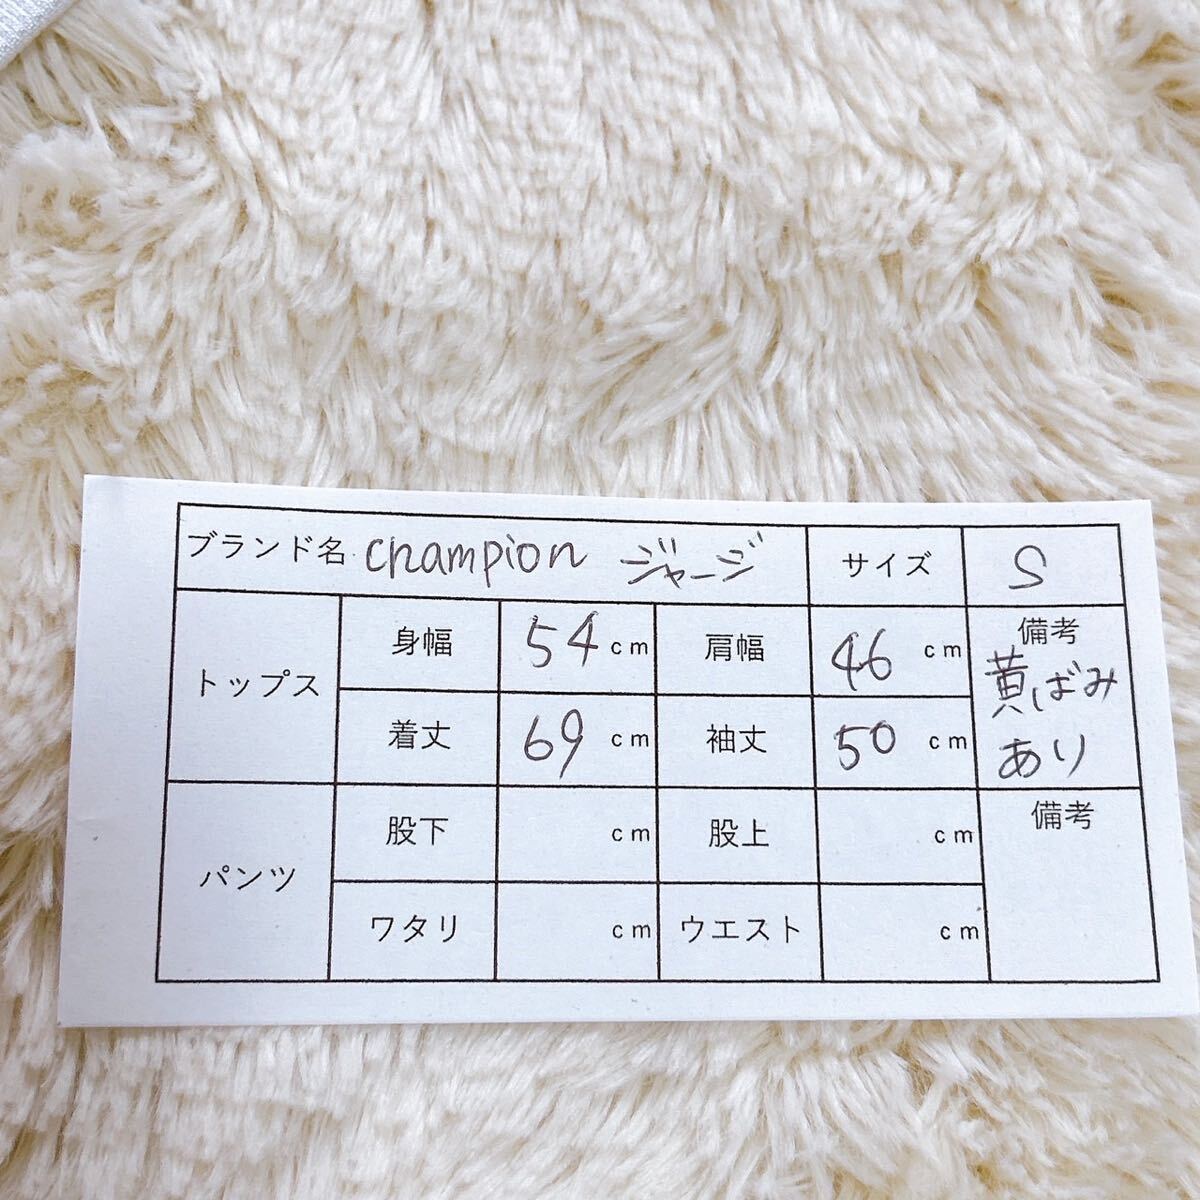 ブランド名 Champion ジャージ サイズ S
トップス 身幅 54 cm 肩幅 46 cm 備考
黄ばみ
あり
着丈 69 cm 袖丈 50 cm
パンツ 股下 cm 股上 cm 備考
ワタリ cm ウエスト cm